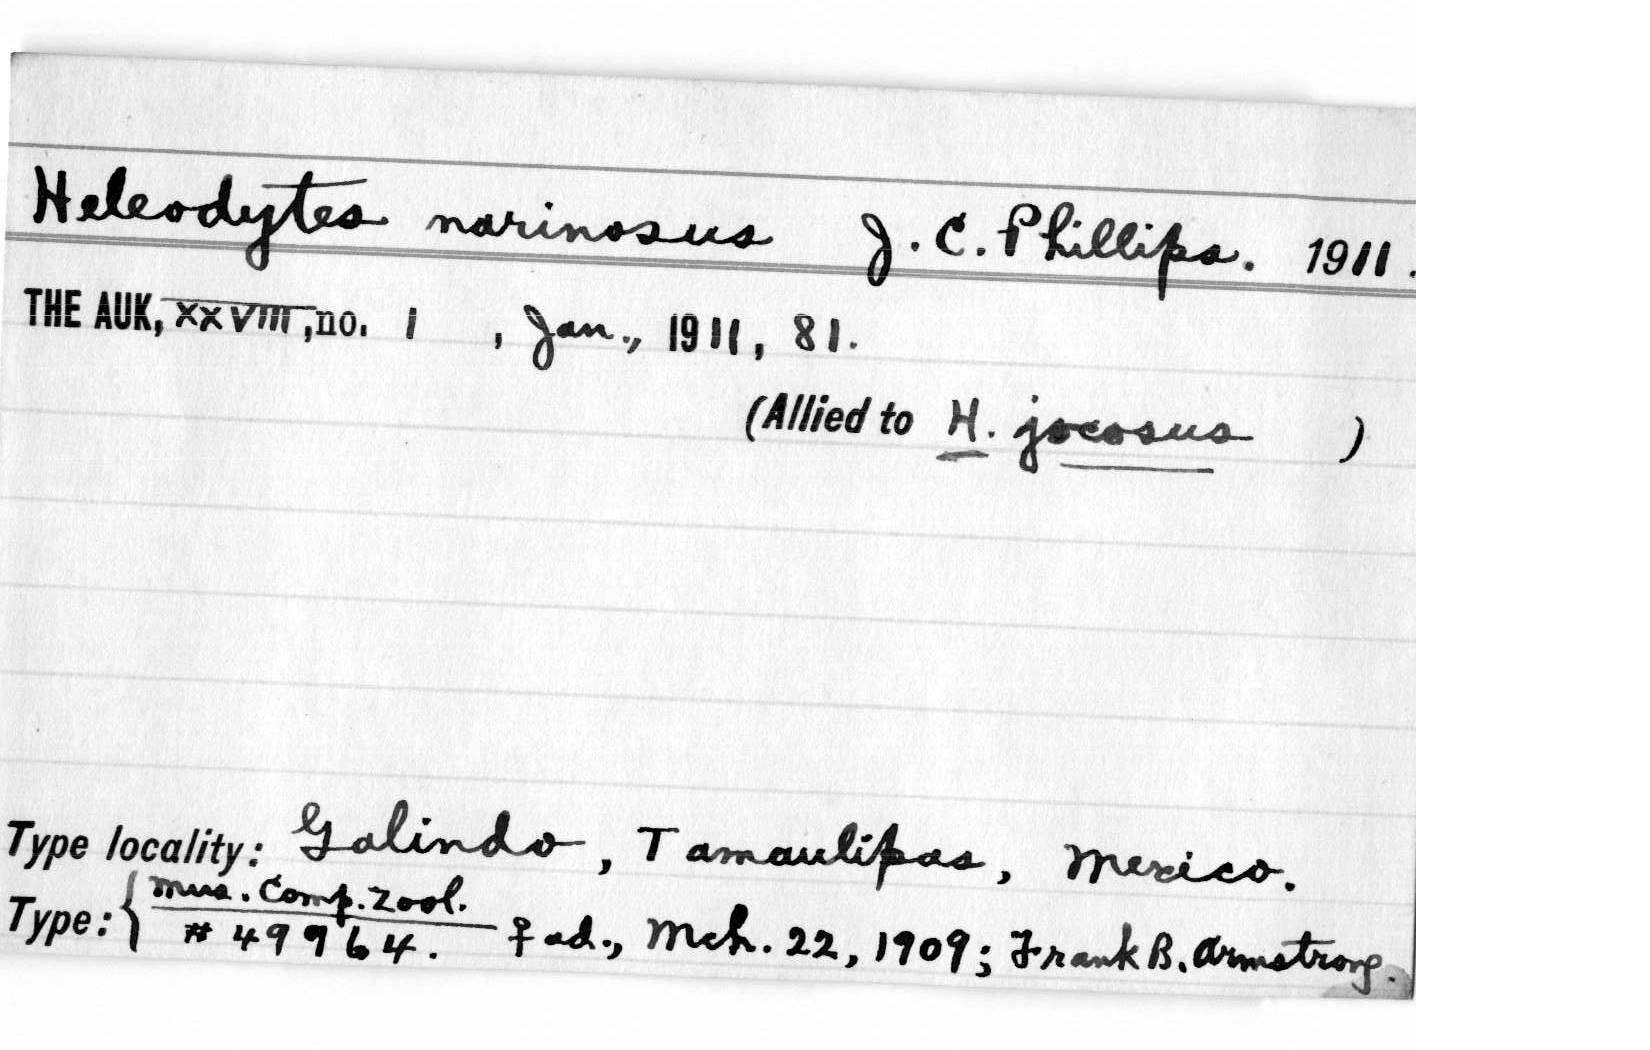 Heleodytes narinosus J. C. Phillips. 1911.
THE AUK, XXVIII, no. 1, Jan., 1911, 81.
(Allied to H. jocosus )
Type locality: Galindo, Tamaulipas, Mexico.
Type: { Mus. Comp. Zool.
# 49964. ♀ ad., Mch. 22, 1909; Frank B. Armstrong.